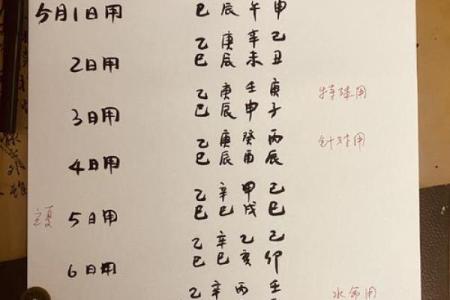 5月1日用 巳 辰 午 申
乙 庚 辛 己
2日用 巳 辰 未 丑
乙 庚 壬 庚 特殊用
3日用 巳 辰 申 子
乙 庚 癸 丙 针对用
4日用 巳 辰 酉 辰
乙 辛 甲 己
立夏 5日用 巳 巳 戌 巳
乙 辛 乙 己
6日用 巳 巳 亥 卯
乙 辛 丙 壬 水命用